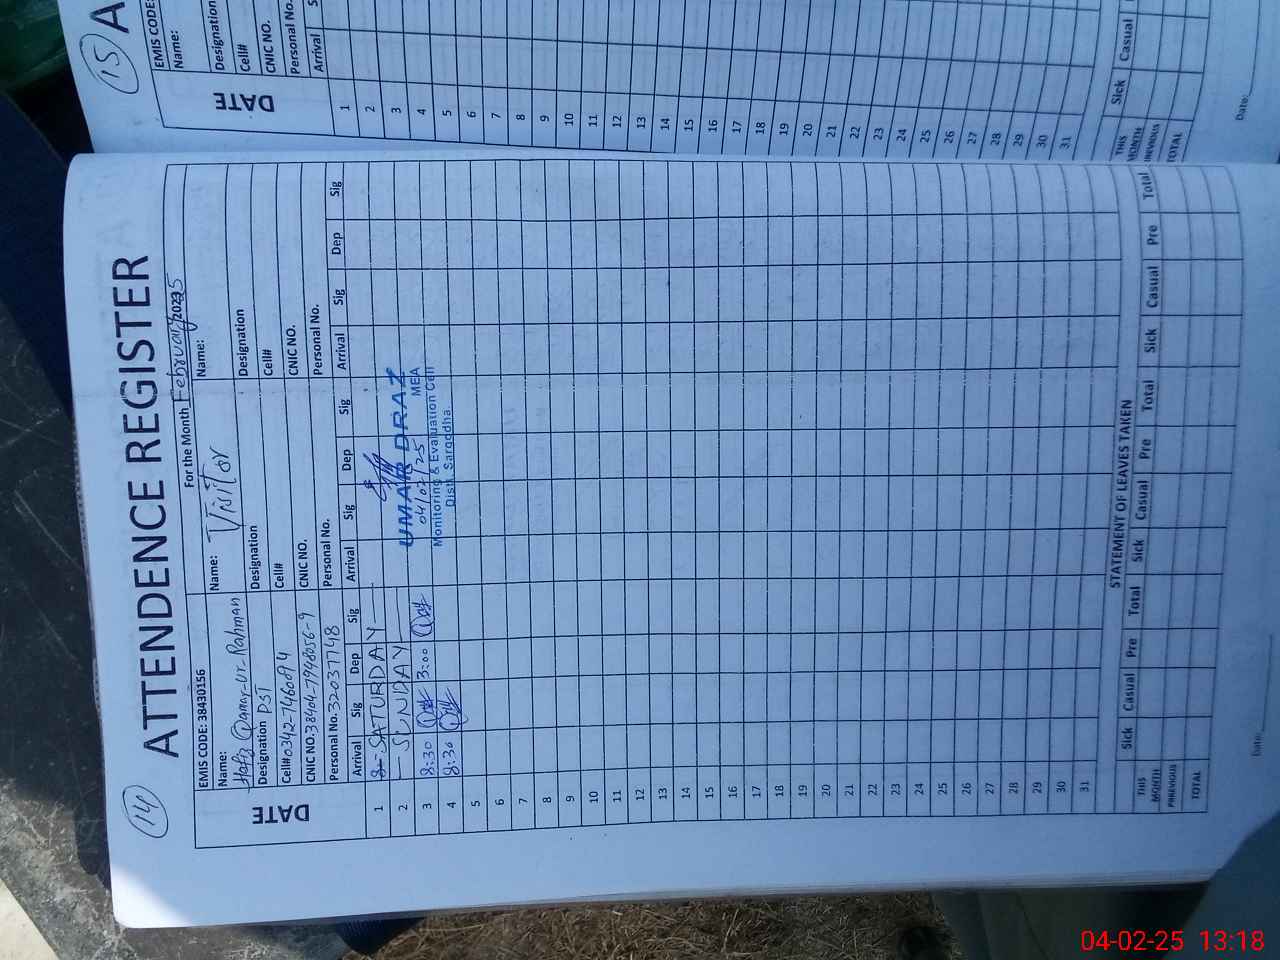 14
ATTENDENCE REGISTER
EMIS CODE: 38430156
For the Month February 2025
Name: Hafiz Qamar-ur-Rahman
Name: Visitor
Name:
Designation PST
Designation
Designation
Cell# 0342-7460894
Cell#
Cell#
CNIC NO. 38404-7948056-9
CNIC NO.
CNIC NO.
Personal No. 32037748
Personal No.
Personal No.
DATE
Arrival Sig Dep Sig Arrival Sig Dep Sig Arrival Sig Dep Sig
1 SATURDAY
2 SUNDAY
3 8:30 3:00
4 8:30
UMAR DRAZ
04/02/25 MEA
Monitoring & Evaluation Cell
Distt. Sargodha
5
6
7
8
9
10
11
12
13
14
15
16
17
18
19
20
21
22
23
24
25
26
27
28
29
30
31
STATEMENT OF LEAVES TAKEN
Sick Casual Pre Total Sick Casual Pre Total Sick Casual Pre Total
THIS MONTH
PREVIOUS
TOTAL
Date:
15
A
EMIS CODE:
Name:
Designation
Cell#
CNIC NO.
Personal No.
DATE
Arrival
1
2
3
4
5
6
7
8
9
10
11
12
13
14
15
16
17
18
19
20
21
22
23
24
25
26
27
28
29
30
31
Sick Casual
THIS MONTH
PREVIOUS
TOTAL
Date:
04-02-25 13:18